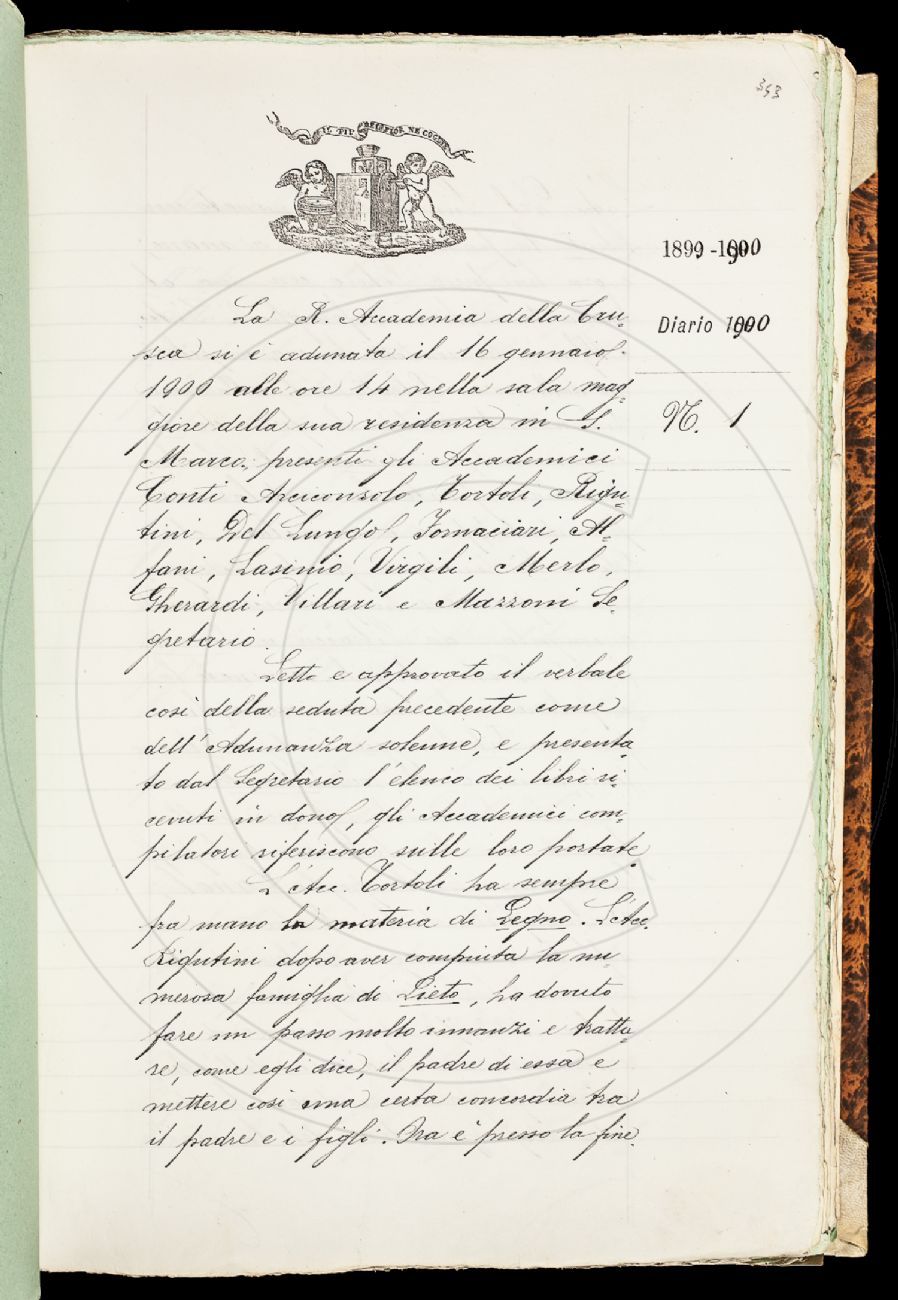 353
IL PIÙ BEL FIOR NE COGLIE
1899 - 1900
Diario 1900
N. 1
La R. Accademia della Cru-
sca si è adunata il 16 gennaio
1900 alle ore 14 nella sala mag-
giore della sua residenza in S.
Marco; presenti gli Accademici
Conti Arciconsolo, Tortoli, Rigu-
tini, Del Lungo, Fornaciari, Al-
fani, Lasinio, Virgili, Merlo,
Gherardi, Villari e Mazzoni Se-
gretario.
Letto e approvato il verbale
così della seduta precedente come
dell'Adunanza solenne, e presenta-
to dal Segretario l'elenco dei libri ri-
cevuti in dono, gli Accademici com-
pilatori riferiscono sulle loro portate.
L'Acc. Tortoli ha sempre
fra mano la materia di Legno. L'Acc.
Rigutini dopo aver compiuta la nu-
merosa famiglia di Lieto, ha dovuto
fare un passo molto innanzi e tratta-
re, come egli dice, il padre di essa e
mettere così una certa concordia tra
il padre e i figli. Ora è presso la fine